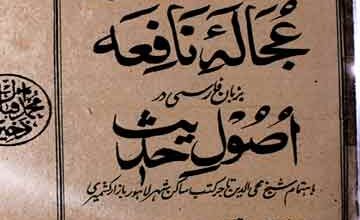 عُجالۂ نافعہ
بزبان فارسی در
اصُول حدیث
باہتمام شیخ محی الدین تاجر کتب ساکن شہر لاہور بازار کشمیری